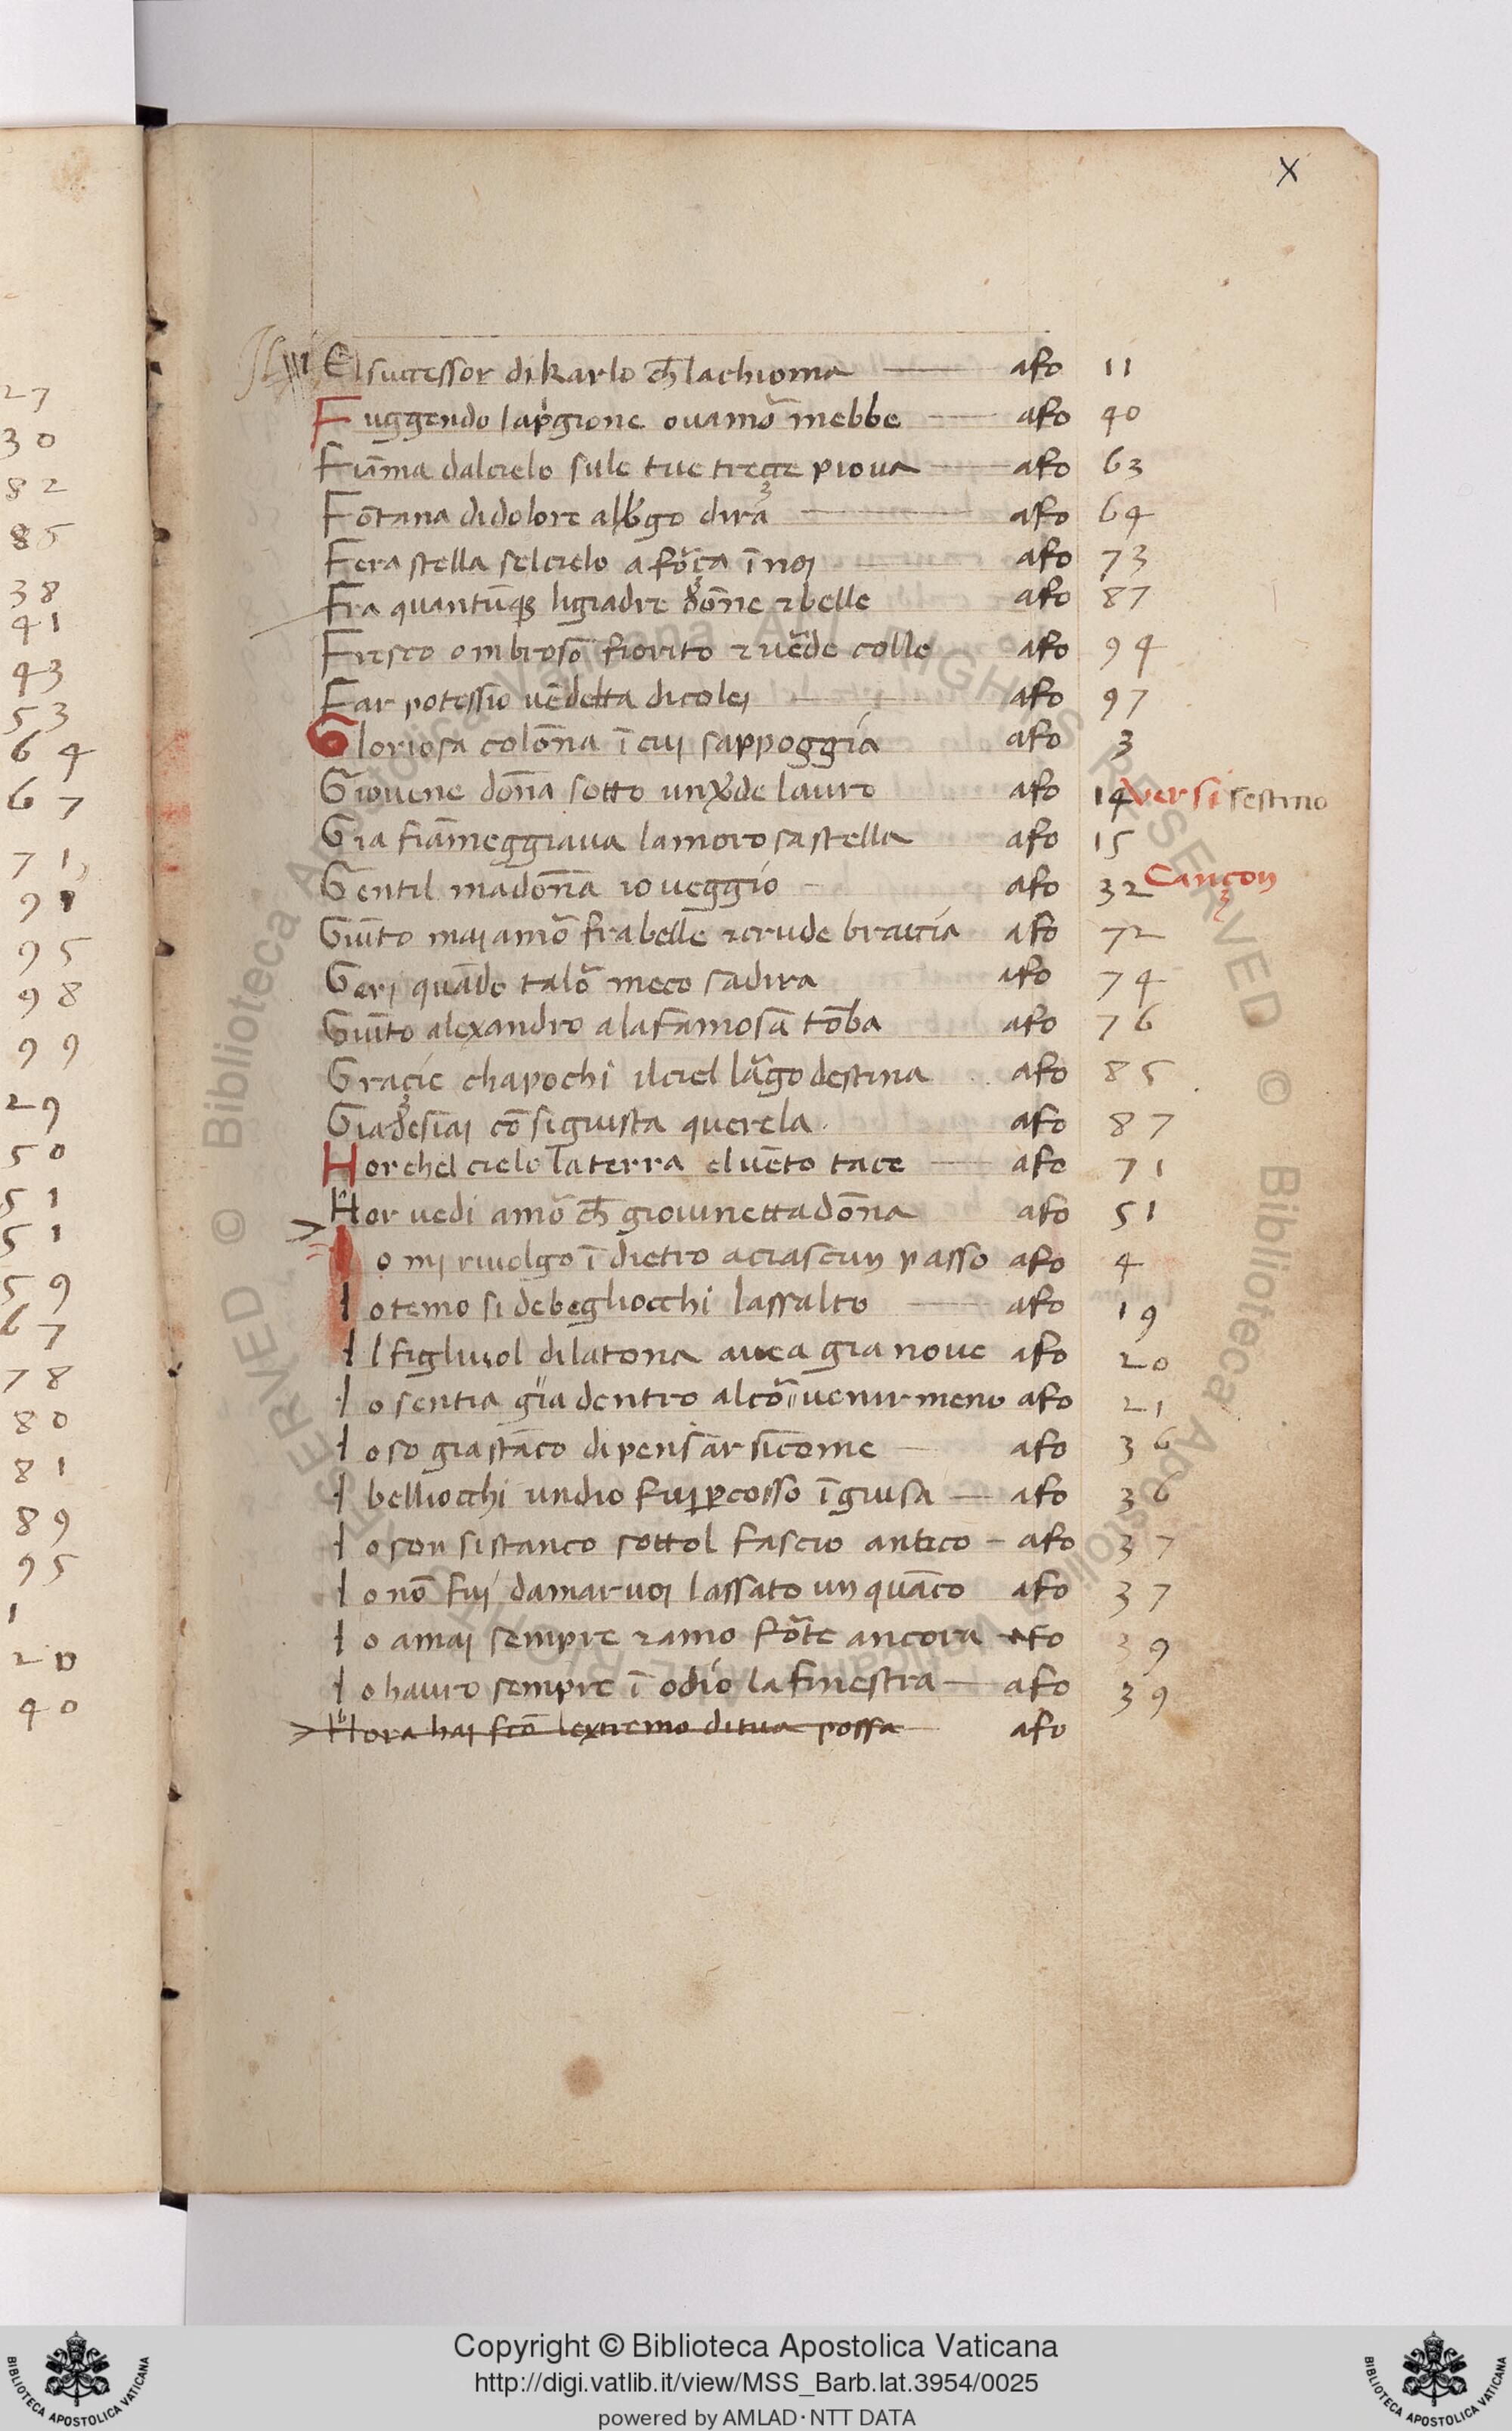 X
El successor di karlo ch̄ lachioma afo 11
Fuggendo lap̍gione ovamor̄ mebbe afo 40
Fiām̄a dalcielo sule tue trecçe piova afo 63
Fōtana didolore albergo dira afo 64
Fera stella selcielo a força ī noi afo 73
Fra quantūq3 ligiadre dōne 2 belle afo 87
Fresco ombroso fiorito 2 vēde colle afo 94
Far potessio vēdetta dicolei afo 97
Gloriosa colōna ī cui sappoggia afo 3
Giovene dōna sotto un v̄de lauro afo 14 versi sestino
Gia fiāmeggiaua lamorosa stella afo 15
Gentil madōna io veggio afo 32 Cançon
Giūto mai amor̄ fra belle 2 crude braccia afo 72
Geri quādo talor̄ meco sadira afo 74
Giūto alexandro ala famosa tōba afo 76
Gracie chapochi il ciel lārgo destina afo 85
Gia desiai cō si giusta querela afo 87
Hor chel cielo 7 la terra el vēto tace afo 71
Hor vedi amor̄ ch̄ giovinetta dōna afo 51
Io mi rivolgo ī dietro aciascun passo afo 4
Io temo si debegliocchi lassalto afo 19
Il figliuol dilatona auea gia noue afo 20
Io sentia gia dentro alcor̄ venir meno afo 21
Io so gia stāco dipensar sicome afo 36
I belliocchi undio fui p̱cosso ī guisa afo 36
Io son si stanco sottol fascio antico afo 37
Io nō fui damar voi lassato unquāco afo 37
Io amai sempre 2 amo fōrte ancora afo 39
Io hauro sempre ī odio la finestra afo 39
Hora hai fcō lextremo ditua possa afo
27
30
82
85
38
41
43
53
64
67
71
91
95
98
99
29
50
51
51
59
67
78
80
81
89
95
1
20
40
Copyright © Biblioteca Apostolica Vaticana
http://digi.vatlib.it/view/MSS_Barb.lat.3954/0025
powered by AMLAD · NTT DATA
BIBLIOTECA APOSTOLICA VATICANA
BIBLIOTECA APOSTOLICA VATICANA